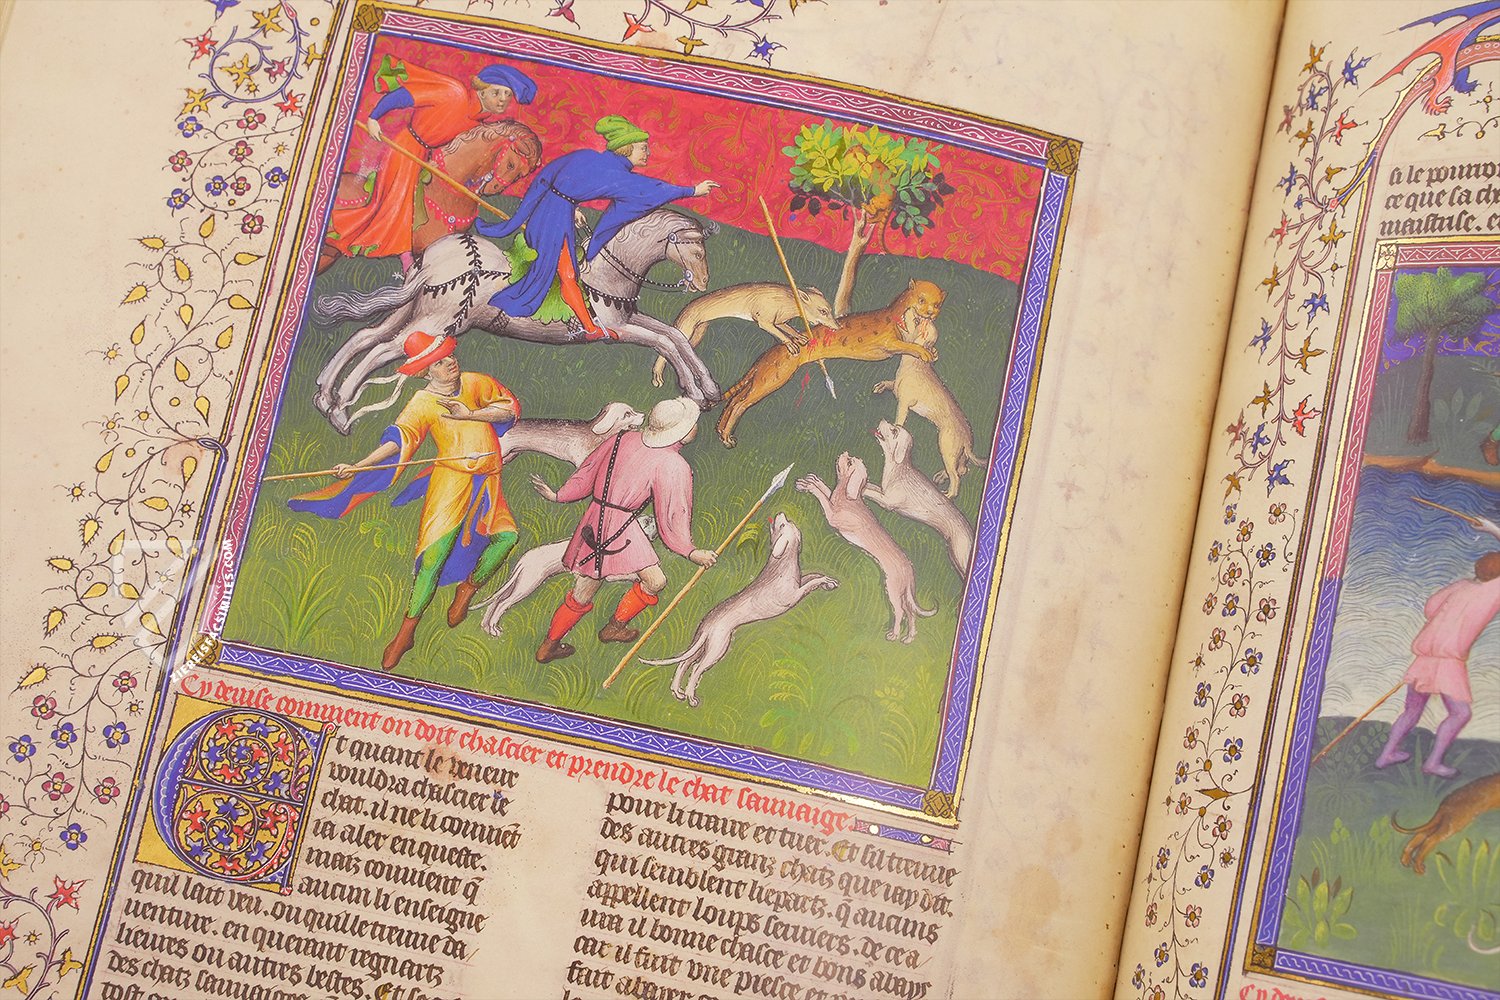 Cy deuise comment on doit chascier et prendre le chat sauuaige.
Et quant le veneur
vouldra chascier le
chat. il ne li conuient
ia aler en queste.
maiz conuient q̄
aucun li enseigne
quil lait veu. ou quil le treuue da
uenture. en querant regnartz
lieures ou autres bestes. Et se
des chatz sauuaiges
tost
pour li traire et tuer. Et sil treuue
des autres granz chatz que iay dit.
qui semblent liepartz. q̄ aucuns
appellent loups seruiers. de ce a
ura il bonne chasce et bons abays
car il fuit vne piesce et
fait abayer
si le
ce que sa
maistrise. et
Cy
ZIEREISFACSIMILES.COM